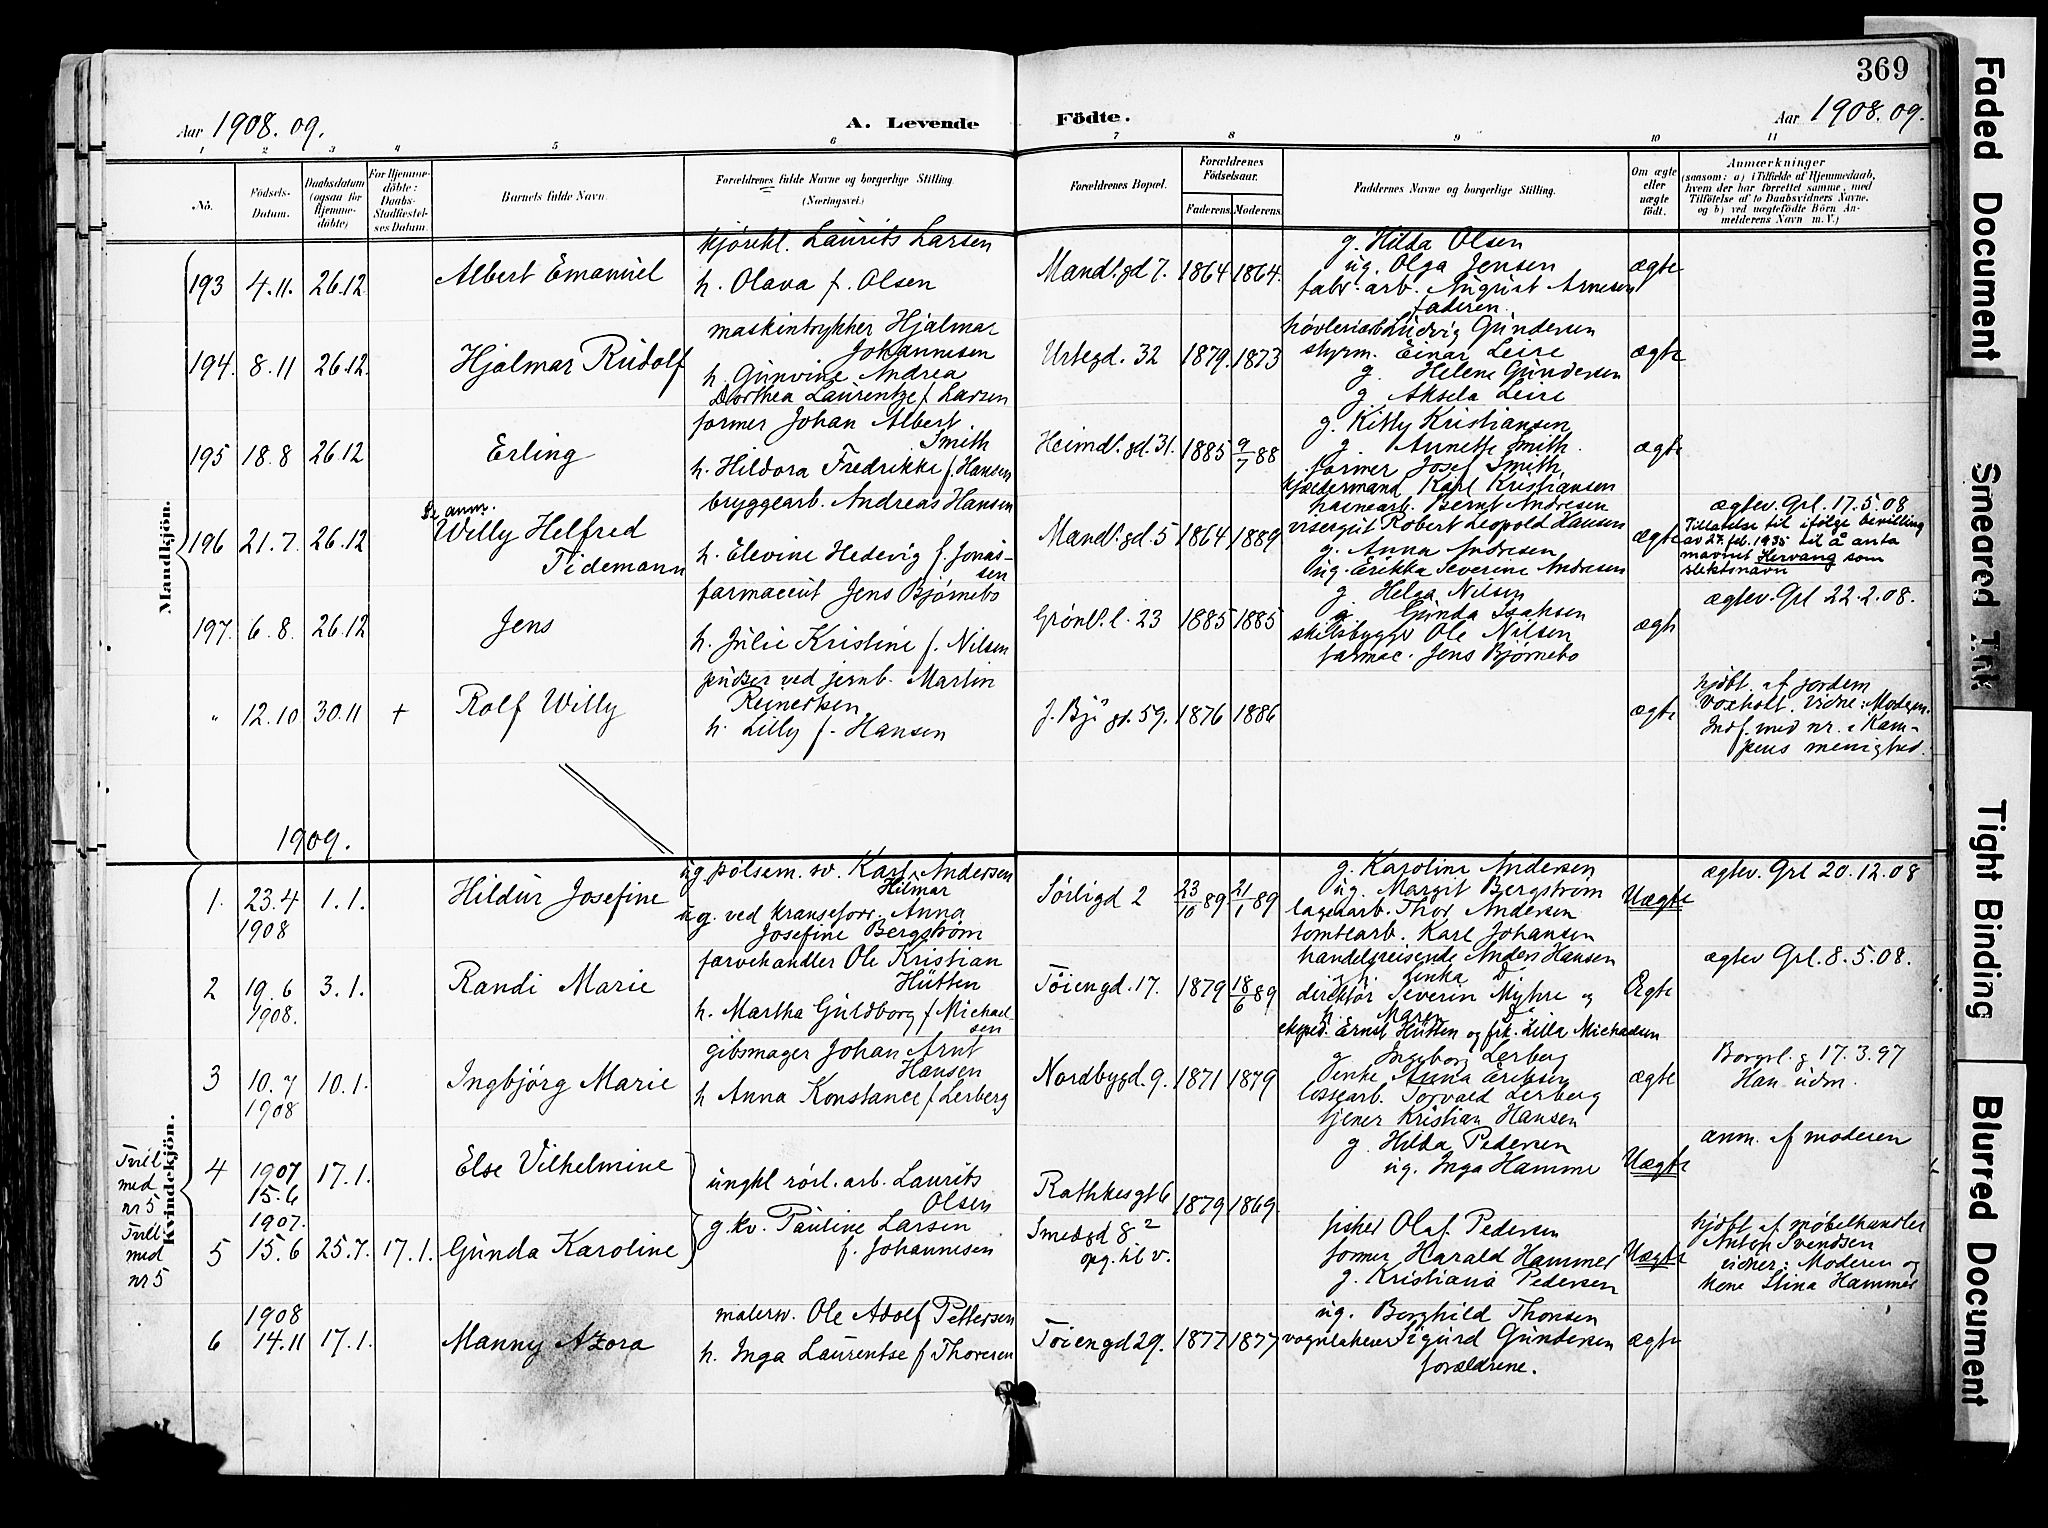 369
Aar 1908.09.
A. Levende Födte.
Aar 1908.09.
1 2 3 4 5 6 7 8 9 10 11
No.
Födsels-Datum.
Daabsdatum (ogsaa for Hjemmedöbte)
For Hjemmedöbte: Daabs-Stadfæstelses Datum.
Barnets fulde Navn
Forældrenes fulde Navne og borgerlige Stilling. (Næringsvei.)
Forældrenes Bopæl.
Forældrenes Födselsaar.
Faderens.
Moderens.
Faddernes Navne og borgerlige Stilling.
Om ægte eller uægte födt.
Anmærkninger
(saasom: a) i Tilfælde af Hjemmedaab,
hvem der har forrettet samme, med
Tilföielse af to Daabsvidners Navne.
og b) ved uægtefödte Börn An-
melderens Navn m. V.)
Mandkjön.
193 4.11. 26.12 Albert Emanuel
kjørekl. Laurits Larsen
h. Olava f. Olsen
Mandl.gd 7. 1864 1864.
g. Hilda Olsen
ug. Olga Jensen
fabr. arb. August Arnesen
faderen.
ægte
194. 8.11 26.12. Hjalmar Rudolf
maskintrykker Hjalmar
Johannesen
h. Gunvine Andrea
Dorthea Laurentze f. Larsen
Urtegd. 32 1879. 1873
høvleriarb. Ludvig Gundersen
styrm. Einar Leire
g. Helene Gundersen
g. Aksela Leire
ægte
195 18.8 26.12 Erling
former Johan Albert
Smith
h. Hildora Fredrikke f. Hansen
Heimdl.gd.31. 1885 9/7 88
g. Kitty Kristiansen
g. Annette Smith
former Josef Smith
kjældermand Karl Kristiansen
ægte
Se anm.
196 21.7. 26.12 Willy Helfred
Tidemann
bryggearb. Andreas Hansen
h. Elevine Hedevig f. Jonas-
sen
Mandl.gd.5 1864 1889
havnearb. Bernt Andresen
visergut Robert Leopold Hansen
g. Anna Andresen
ug. Erikka Severine Andresen
ægte
ægtev. Grl. 17.5.08
Tillatelse til ifølge bevilling
av 27. feb. 1935 til å anta
navnet Hervang som
slektsnavn
197. 6.8. 26.12 Jens
farmaceut Jens Bjørnebo
h. Julie Kristine f. Nilsen
Grønl.l. 23 1885 1885
g. Helga Nilsen
g. Gunda Isaksen
skibsbygger Ole Nilsen
farmac. Jens Bjørnebo
ægte
ægtev. Grl 22.2.08.
" 12.10 30.11 + Rolf Willy
pudser ved jernb. Martin
Reinertsen
h. Lilly f. Hansen
J. Bj. gd. 59. 1876 1886
ægte
hjdbt. af jordem
Voxholt. Vidne: Modern.
Indf. med nr. i Kam-
pens menighed.
1909.
Kvindekjön.
1. 23.4 1908 1.1. Hildur Josefine
ug pølsem. sv. Karl Andersen
Hilmar
ug. ved kranseforr. Anna
Josefine Bergstrøm
Sørligd 2 23/10 89 21/1 89
g. Karoline Andersen
ug. Margit Bergstrøm
lagerarb. Thor Andersen
tomtearb. Karl Johansen
Uægte
ægtev. Grl 20.12.08
2 19.6 1908. 3.1. Randi Marie
farvehandler Ole Kristian
Hütten
h. Martha Guldborg f. Michael-
sen
Tøiengd.17. 1879 18/6 89
handelsreisende Anders Hansen
g. h. Lenka Do
direktør Severin Myhre og
h. Maren Do
eksped. Ernst Hütten og frk. Lilla Michaelsen
Ægte
ægtev Grl. 8.5.08.
3 10.7 1908 10.1. Ingbjörg Marie
gibsmager Johan Arnt
Hansen
h Anna Konstance f Lerberg
Nordbygd.9. 1871 1879
g. Ingeborg Lerberg
enke Anna Eriksen
lossearb. Torvald Lerberg
tjener Kristian Hansen
ægte
Borgerl. g 17.3.97
Han udm.
Tvil.
med
nr 5
4 1907 15.6 17.1. Else Vilhelmine
ungkl rørl. arb. Laurits
Olsen
g. kv. Pauline Larsen
f. Johannesen
Rathkesgt 6 1879 1869.
g. Hilda Pedersen
ug. Inga Hamme
Uægte
anm. af moderen
Tvill
med
nr 5
5 1907. 15.6 25.7. 17.1. Gunda Karoline
Smedgd 8²
opg. til v.
fisker Olaf Pedersen
former Harald Hammer
g. Kristiana Pedersen
Uægte
hjdbt af møbelhandler
Anton Svendsen
vidner: Moderen og
kone Stina Hammer
6 1908 14.11 17.1. Manny Azora
malersv. Ole Adolf Pettersen
h. Inga Laurentse f Thoresen
Tøiengd 29. 1877 1877
ug. Borghild Thonsen
vognlakerer Sigurd Gundersen
forældrene.
ægte
Faded Document
Smeared Ink
Tight Binding
Blurred Document